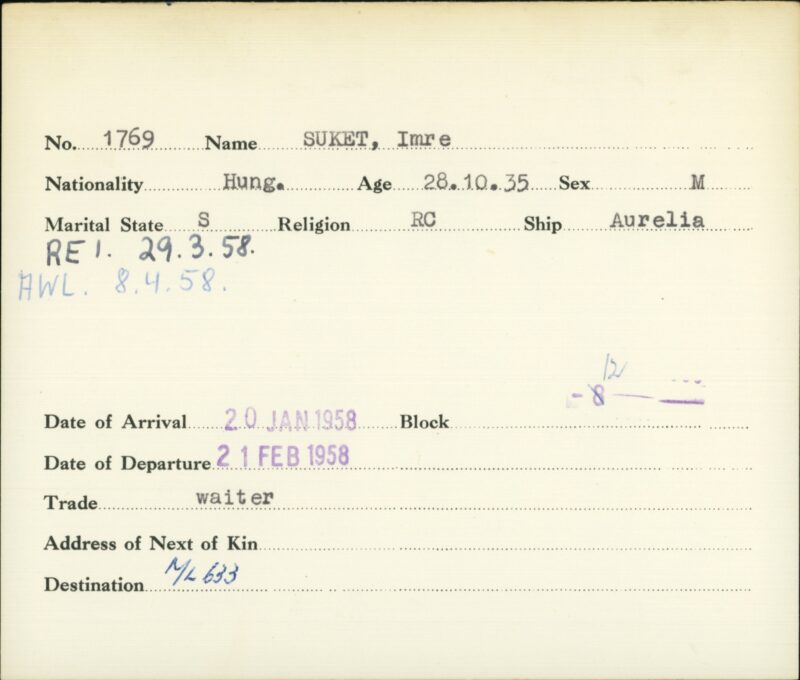 No. 1769 Name SUKET, Imre
Nationality Hung. Age 28.10.35 Sex M
Marital State S Religion RC Ship Aurelia
RE 1. 29.3.58.
AWL. 8.4.58.
12
- 8
Date of Arrival 20 JAN 1958 Block
Date of Departure 21 FEB 1958
Trade waiter
Address of Next of Kin
Destination M/L 633